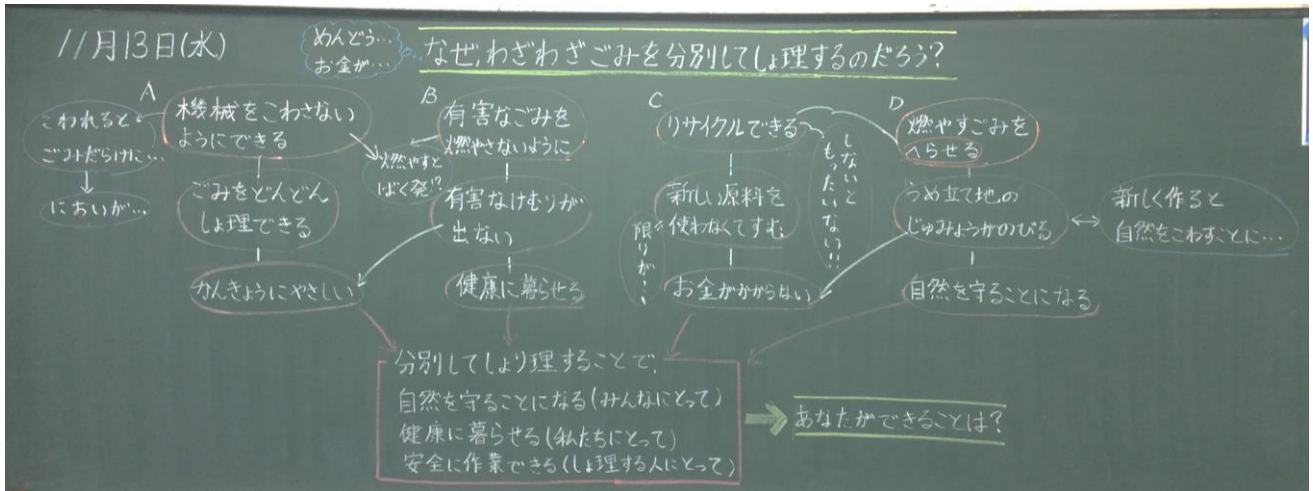 11月13日(水)
めんどう…
お金が…
なぜ,わざわざごみを分別してしょ理するのだろう?
A
機械をこわさない
ようにできる
こわれると
ごみだらけに…
においが…
ごみをどんどん
しょ理できる
かんきょうにやさしい
B
有害なごみを
燃やさないように
燃やすと
ばく発!?
有害なけむりが
出ない
健康に暮らせる
C
リサイクルできる
しないと
もったいない!!
新しい原料を
使わなくてすむ
限りが…
お金がかからない
D
燃やすごみを
へらせる
うめ立て地の
じゅみょうがのびる
新しく作ると
自然をこわすことに…
自然を守ることになる
分別してしょり理することで,
自然を守ることになる(みんなにとって)
健康に暮らせる(私たちにとって)
安全に作業できる(しょ理する人にとって)
あなたができることは?